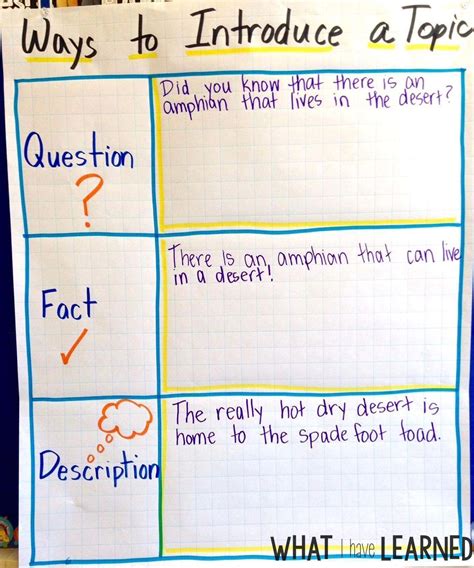 Ways to Introduce a Topic
Question
?
Did you know that there is an
amphian that lives in the desert?
Fact
There is an amphian that can live
in a desert!
Description
The really hot dry desert is
home to the spade foot toad.
WHAT I have LEARNED